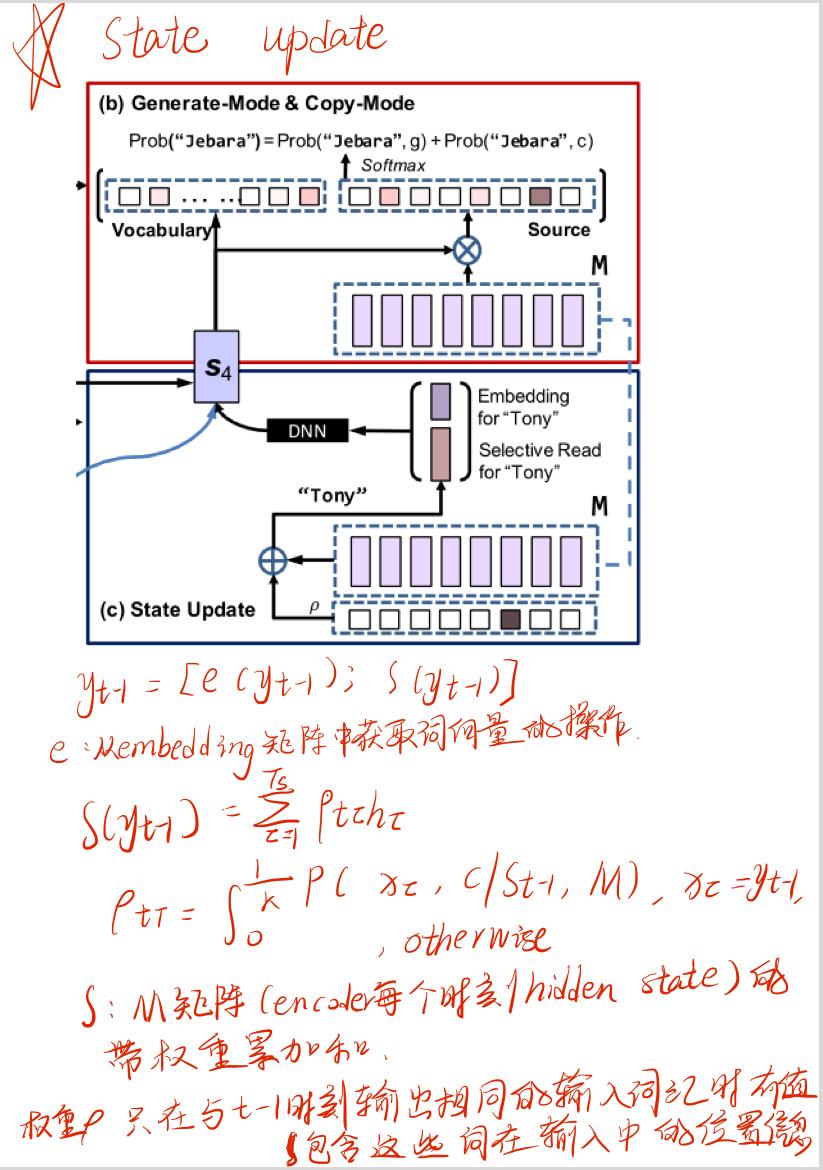 State update
(b) Generate-Mode & Copy-Mode
Prob(“Jebara”) = Prob(“Jebara”, g) + Prob(“Jebara”, c)
Softmax
... ...
Vocabulary
Source
M
S₄
Embedding
for “Tony”
DNN
Selective Read
for “Tony”
“Tony”
M
(c) State Update
ρ
yt-1 = [e(yt-1); S(yt-1)]
e:从embedding矩阵中获取词向量的操作.
S(yt-1) = Σ_{τ=1}^{Ts} ρtτhτ
ρtτ = { 1/K P(xτ, c/St-1, M), xτ=yt-1,
0 , otherwise
S: M矩阵(encoder每个时刻hidden state)的
带权重累加和.
权重ρ 只在与t-1时刻输出相同的输入词汇时有值
S包含这些词在输入中的位置信息